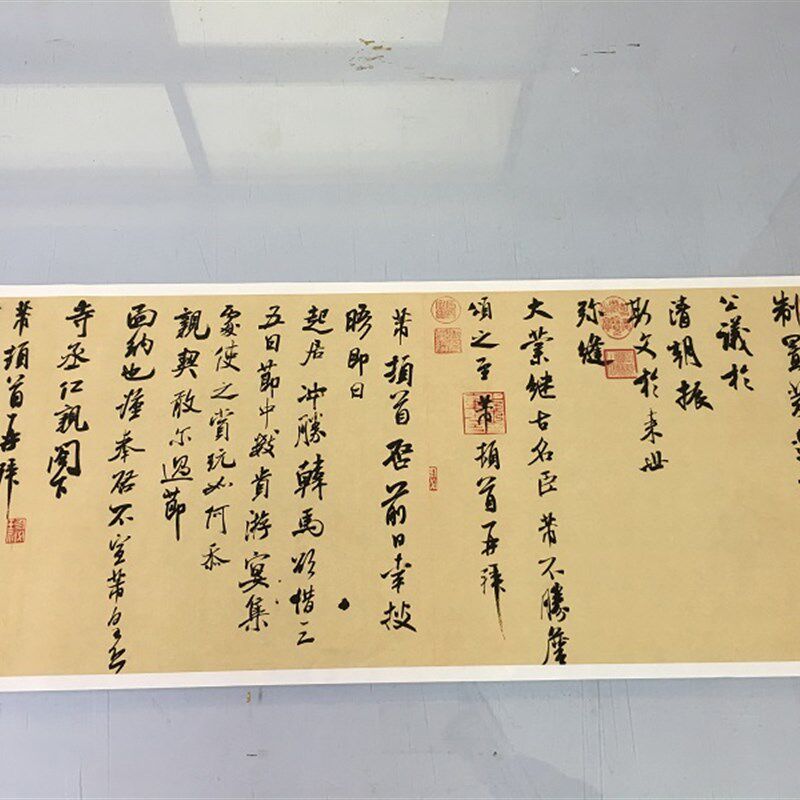 制置
公議於
清朝振
斯文於来世
弥縫
大業继古名臣芾不勝瞻
頌之至芾頓首再拜
芾頓首启前日幸披
晤即日
起居冲勝韓馬欲借三
五日節中數貴游宴集
處使之賞玩如何忝
親契敢尔過節
面納也謹奉启不宣芾白
寺丞仁親阁下
芾頓首再拜